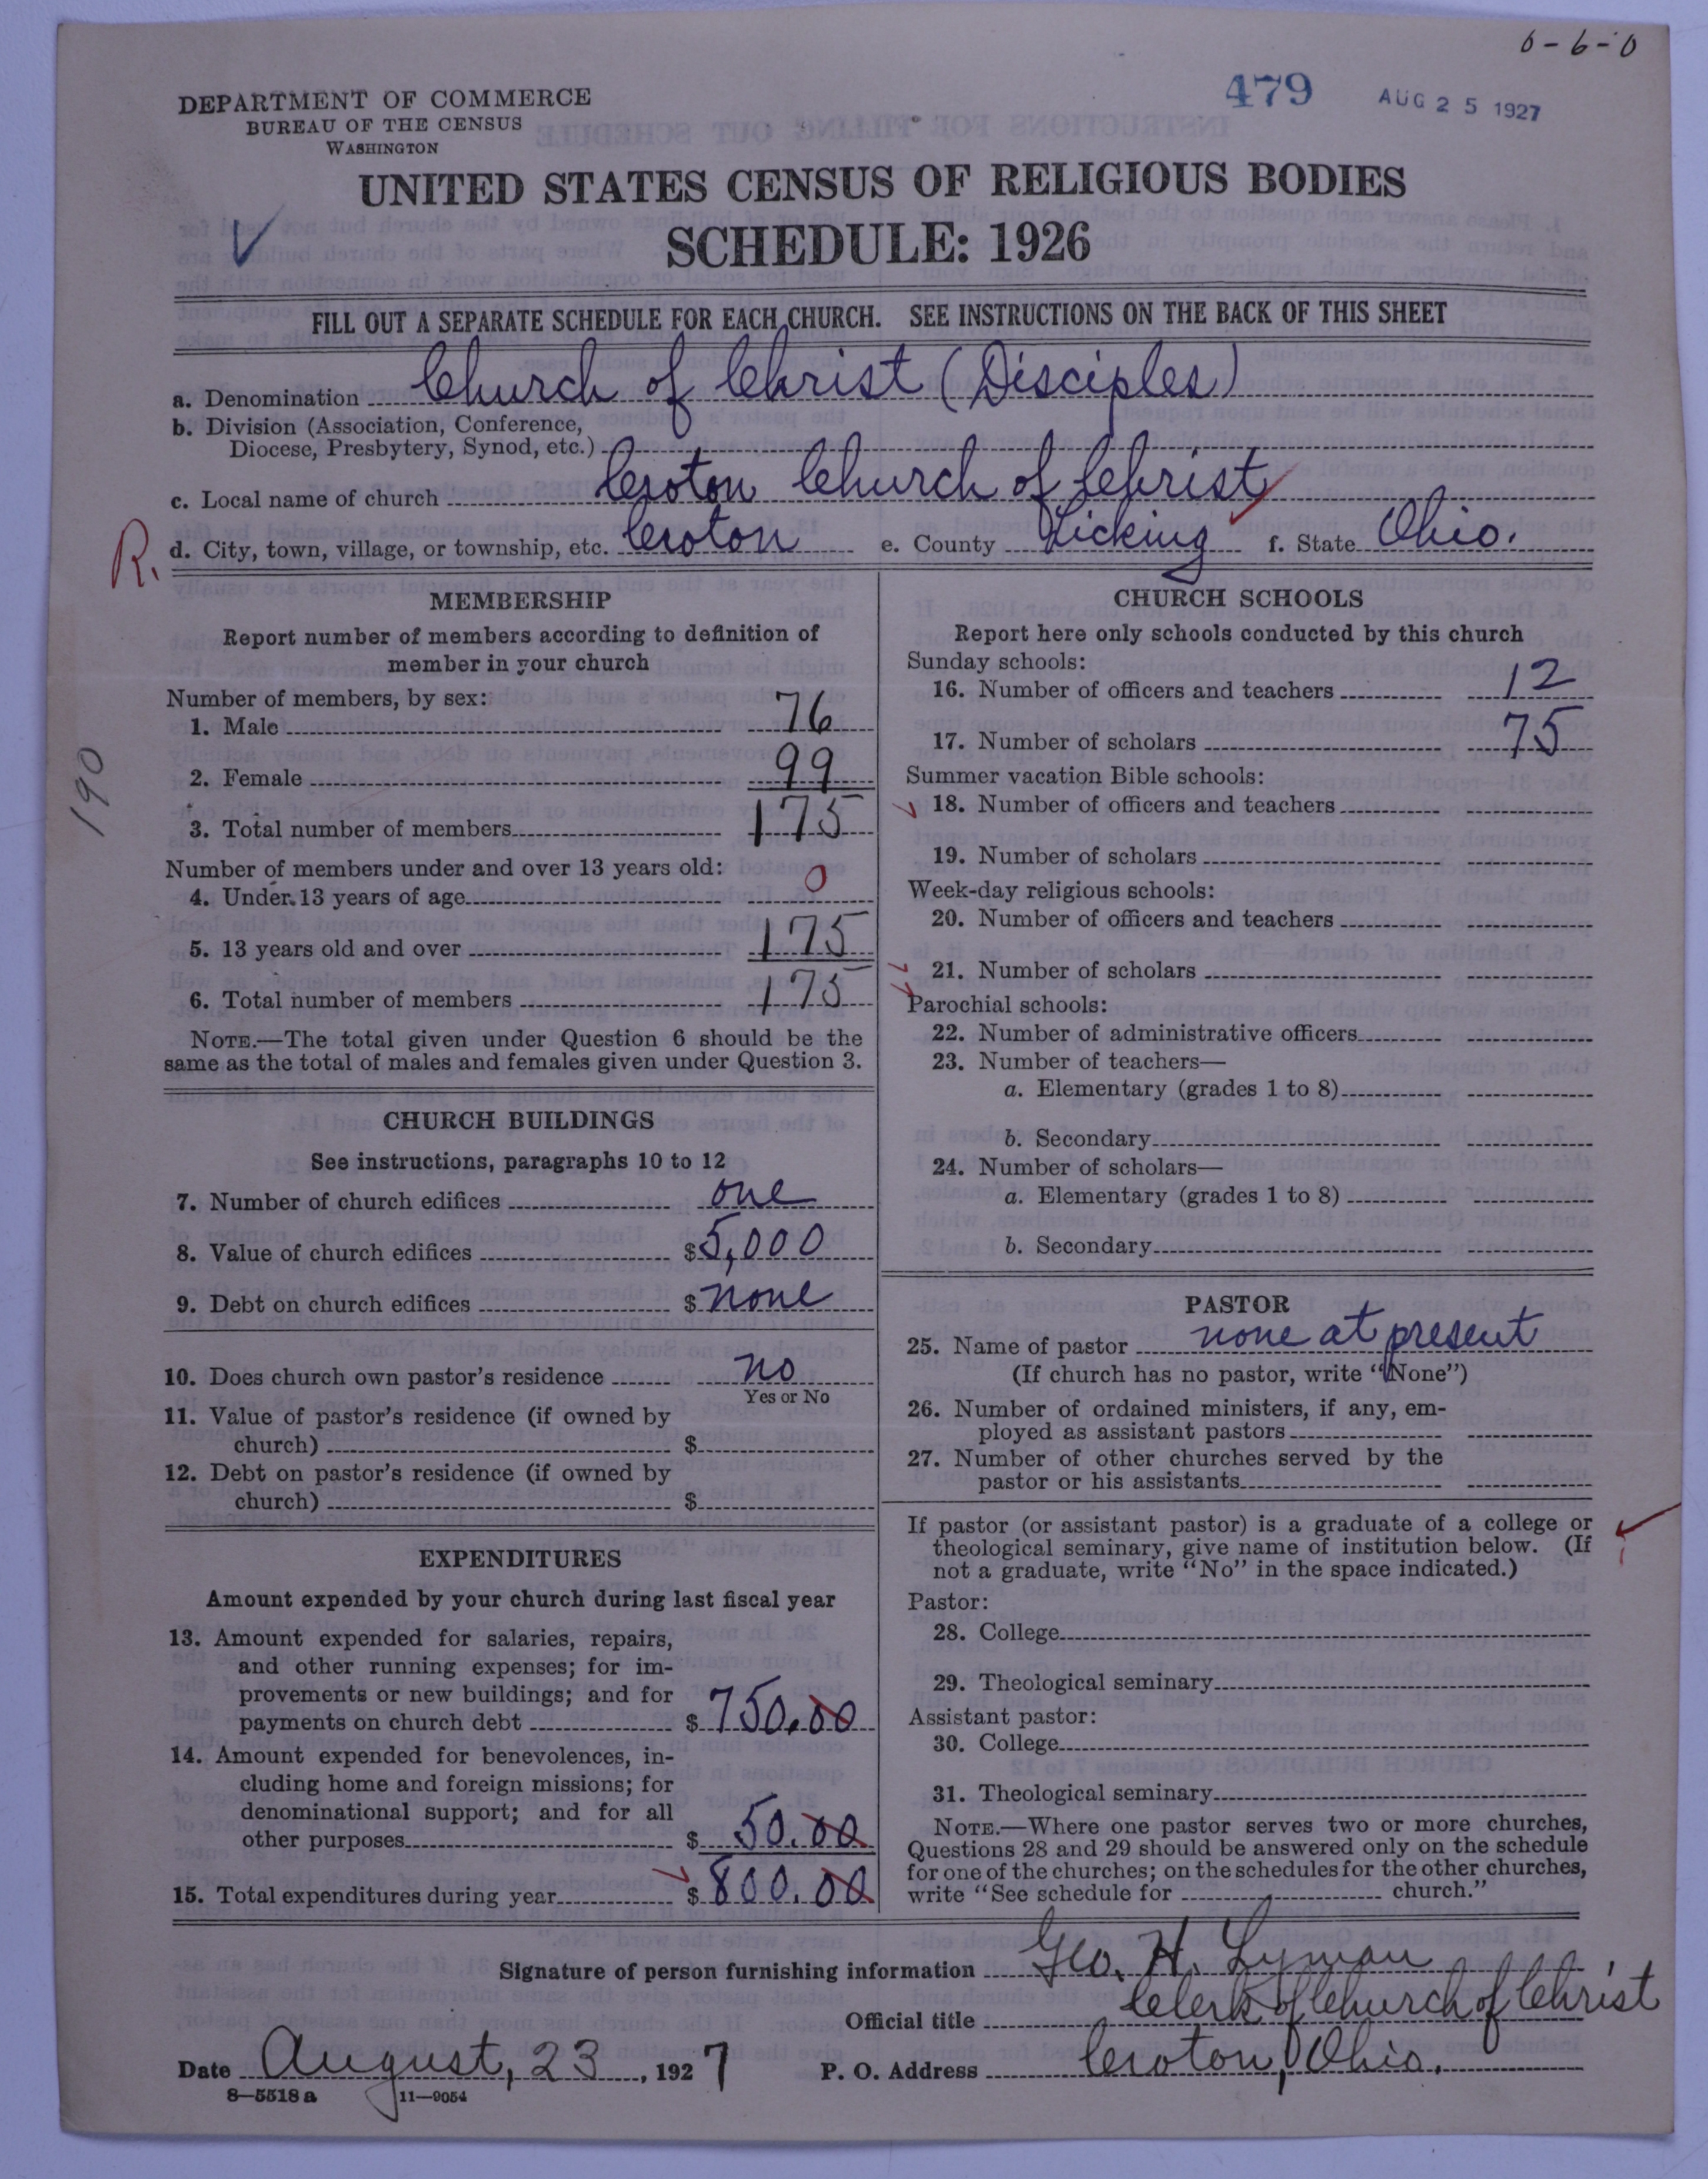 6-6-0
479 AUG 25 1927
DEPARTMENT OF COMMERCE
BUREAU OF THE CENSUS
WASHINGTON
UNITED STATES CENSUS OF RELIGIOUS BODIES
SCHEDULE: 1926
FILL OUT A SEPARATE SCHEDULE FOR EACH CHURCH. SEE INSTRUCTIONS ON THE BACK OF THIS SHEET
a. Denomination Church of Christ (Disciples)
b. Division (Association, Conference,
Diocese, Presbytery, Synod, etc.)
c. Local name of church Croton Church of Christ
R. d. City, town, village, or township, etc. Croton e. County Licking f. State Ohio.
190
MEMBERSHIP
Report number of members according to definition of
member in your church
Number of members, by sex:
1. Male 76
2. Female 99
3. Total number of members 175
Number of members under and over 13 years old:
4. Under 13 years of age 0
5. 13 years old and over 175
6. Total number of members 175
NOTE.—The total given under Question 6 should be the
same as the total of males and females given under Question 3.
CHURCH BUILDINGS
See instructions, paragraphs 10 to 12
7. Number of church edifices one
8. Value of church edifices $5,000
9. Debt on church edifices $none
10. Does church own pastor's residence no
Yes or No
11. Value of pastor's residence (if owned by
church) $
12. Debt on pastor's residence (if owned by
church) $
EXPENDITURES
Amount expended by your church during last fiscal year
13. Amount expended for salaries, repairs,
and other running expenses; for im-
provements or new buildings; and for
payments on church debt $750.00
14. Amount expended for benevolences, in-
cluding home and foreign missions; for
denominational support; and for all
other purposes $50.00
15. Total expenditures during year $800.00
CHURCH SCHOOLS
Report here only schools conducted by this church
Sunday schools:
16. Number of officers and teachers 12
17. Number of scholars 75
Summer vacation Bible schools:
18. Number of officers and teachers
19. Number of scholars
Week-day religious schools:
20. Number of officers and teachers
21. Number of scholars
Parochial schools:
22. Number of administrative officers
23. Number of teachers—
a. Elementary (grades 1 to 8)
b. Secondary
24. Number of scholars—
a. Elementary (grades 1 to 8)
b. Secondary
PASTOR
25. Name of pastor none at present
(If church has no pastor, write "None")
26. Number of ordained ministers, if any, em-
ployed as assistant pastors
27. Number of other churches served by the
pastor or his assistants
If pastor (or assistant pastor) is a graduate of a college or
theological seminary, give name of institution below. (If
not a graduate, write "No" in the space indicated.)
Pastor:
28. College
29. Theological seminary
Assistant pastor:
30. College
31. Theological seminary
NOTE.—Where one pastor serves two or more churches,
Questions 28 and 29 should be answered only on the schedule
for one of the churches; on the schedules for the other churches,
write "See schedule for church."
Signature of person furnishing information Geo. H. Lyman
Official title Clerk of Church of Christ
Date August, 23, 1927 P. O. Address Croton, Ohio.
8—5518a 11—9054